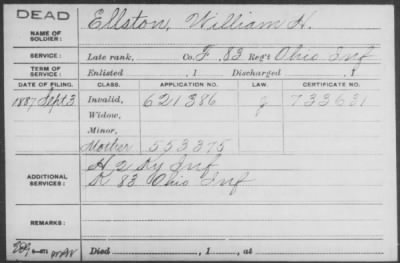 DEAD
NAME OF SOLDIER: Ellston, William H.
SERVICE: Late rank, Co. F. 83 Reg't Ohio Inf
TERM OF SERVICE: Enlisted , 1 Discharged , 1
DATE OF FILING. CLASS. APPLICATION NO. LAW. CERTIFICATE NO.
1887 Sept 3 Invalid, 621386 g 733631
Widow,
Minor,
Mother 553375
ADDITIONAL SERVICES: H 2 Ky Inf
K 83 Ohio Inf
REMARKS:
Died , 1 , at